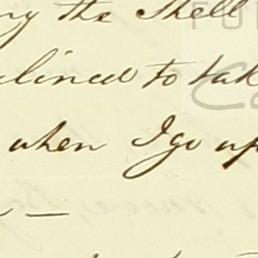 the Shell
clined to tak
when I go up